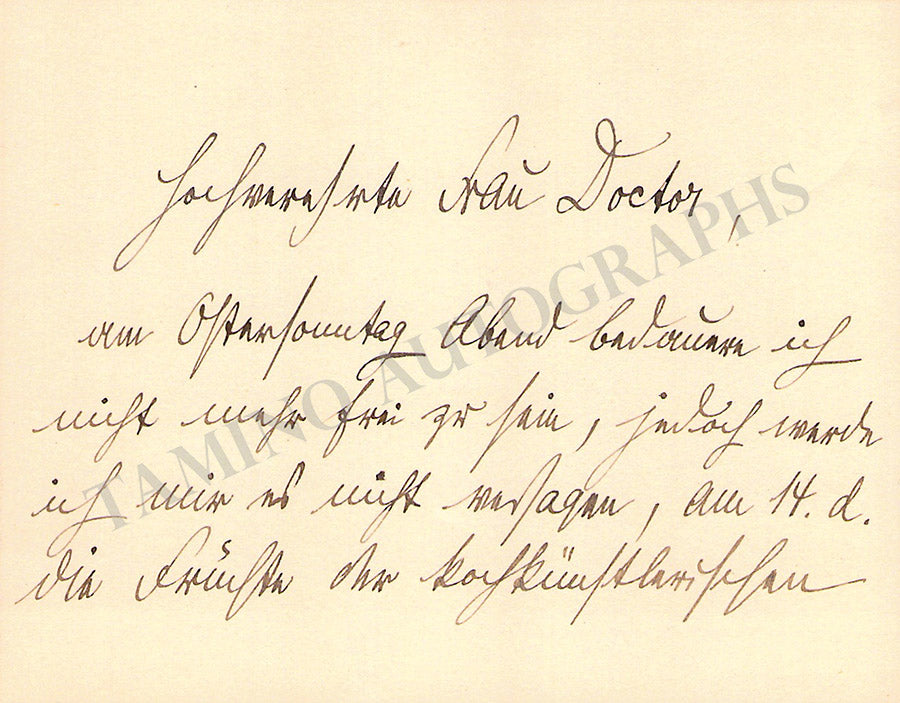 Hochverehrte Frau Doctor,
am Ostersonntag Abend bedauere ich
nicht mehr frei zu sein, jedoch werde
ich mir es nicht versagen, am 14. d.
die Früchte der kochkünstlerischen
TAMINO AUTOGRAPHS